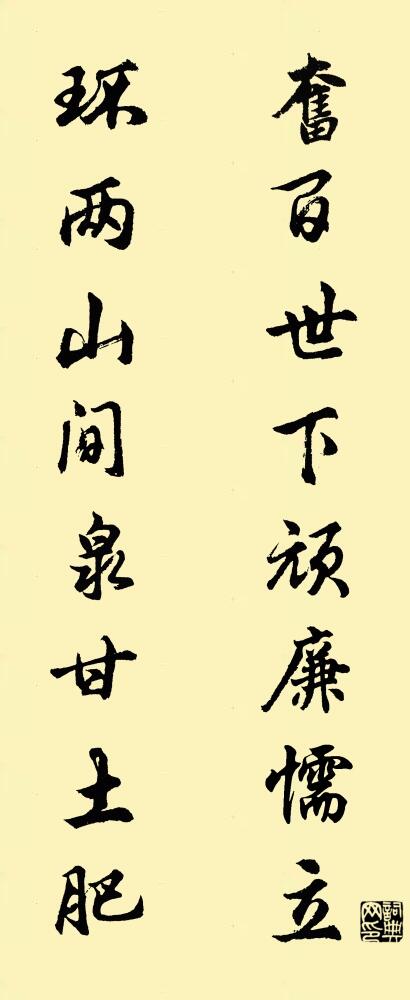 奋百世下顽廉懦立
环两山间泉甘土肥
词典网印